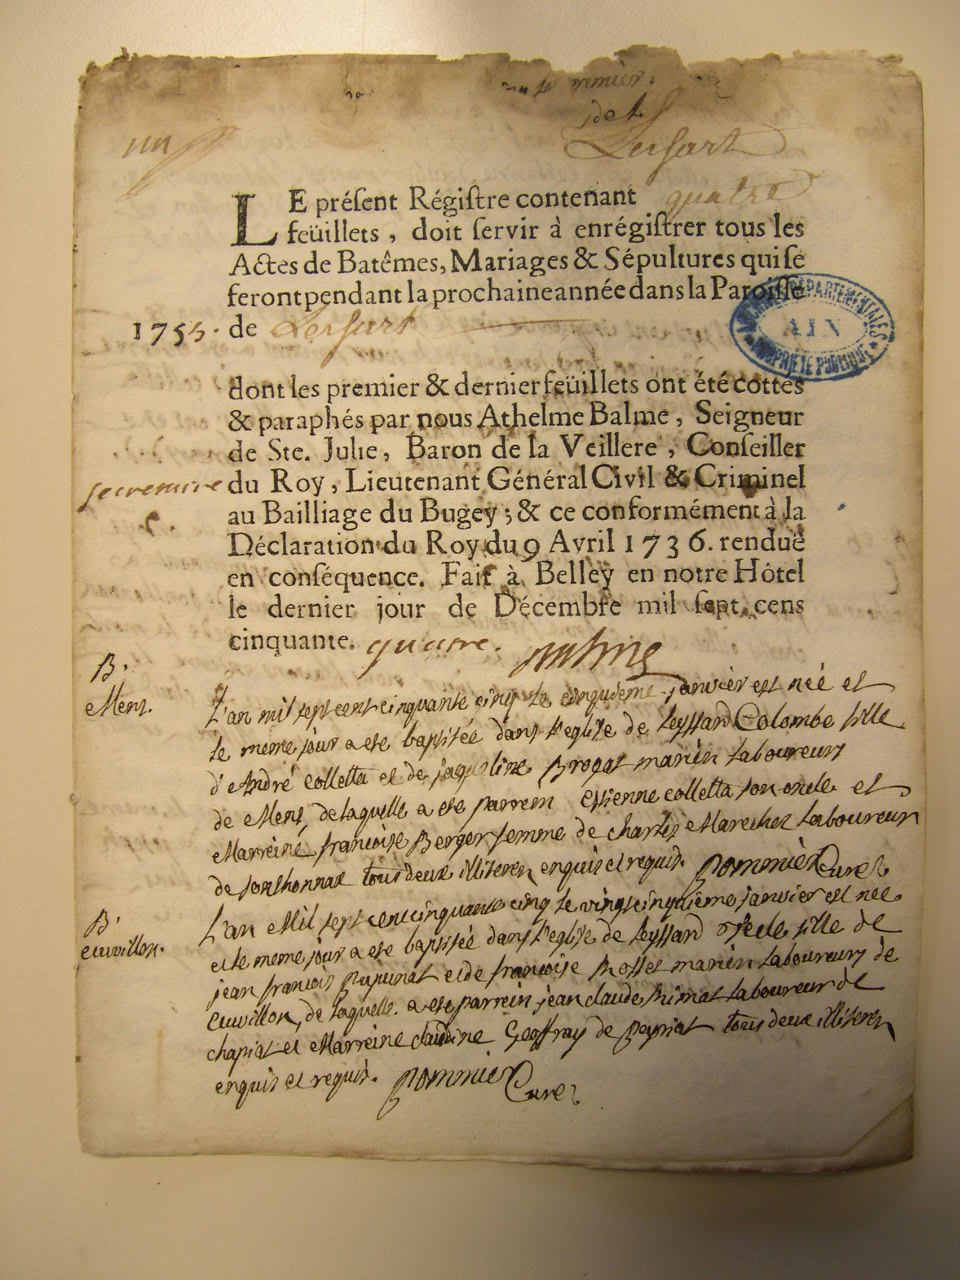 premier.
Leissart
LE préſent Régiſtre contenant quatre
feüillets, doit ſervir à enrégiſtrer tous les
Actes de Batêmes, Mariages & Sépultures qui ſe
feront pendant la prochaine année dans la Paroiſſe
1755. de Leissart
ARCHIVES DÉPARTEMENTALES
AIN
PROPRIÉTÉ PUBLIQUE
dont les premier & dernier feüillets ont été cottés
& paraphés par nous Athelme Balme, Seigneur
de Ste. Julie, Baron de la Veillere, Conſeiller
secretaire du Roy, Lieutenant Général Civil & Criminel
au Bailliage du Bugey; & ce conformément à la
Déclaration du Roy du 9 Avril 1736. rendue
en conſéquence. Fait à Belley en notre Hôtel
le dernier jour de Décembre mil ſept cens
cinquante. quatre.
B.
Mens.
L'an mil sept cent cinquante cinq le cinquieme janvier est née et
le meme jour a ete baptisée dans l'eglise de leyssard Colombe fille
d'André Colletta et de jaqueline Brogat mariés Laboureurs
de Mens, de laquelle a ete parrein Estienne colletta son oncle et
Marreine françoise Berger femme de charles Marechet Laboureur
de tous deux illiteres enquis et requis. Pommier Curé
B.
euvillon.
L'an Mil sept cent cinquante cinq le vingt cinquieme janvier est née
et le meme jour a ete baptisée dans l'eglise de leyssard fille de
jean françois et de françoise mariés Laboureurs de
Euvillon, de laquelle a ete parrein jean claude Laboureur de
chapiat et Marreine claudine Geoffray de Peyriat tous deux illiteres
enquis et requis. Pommier Curé